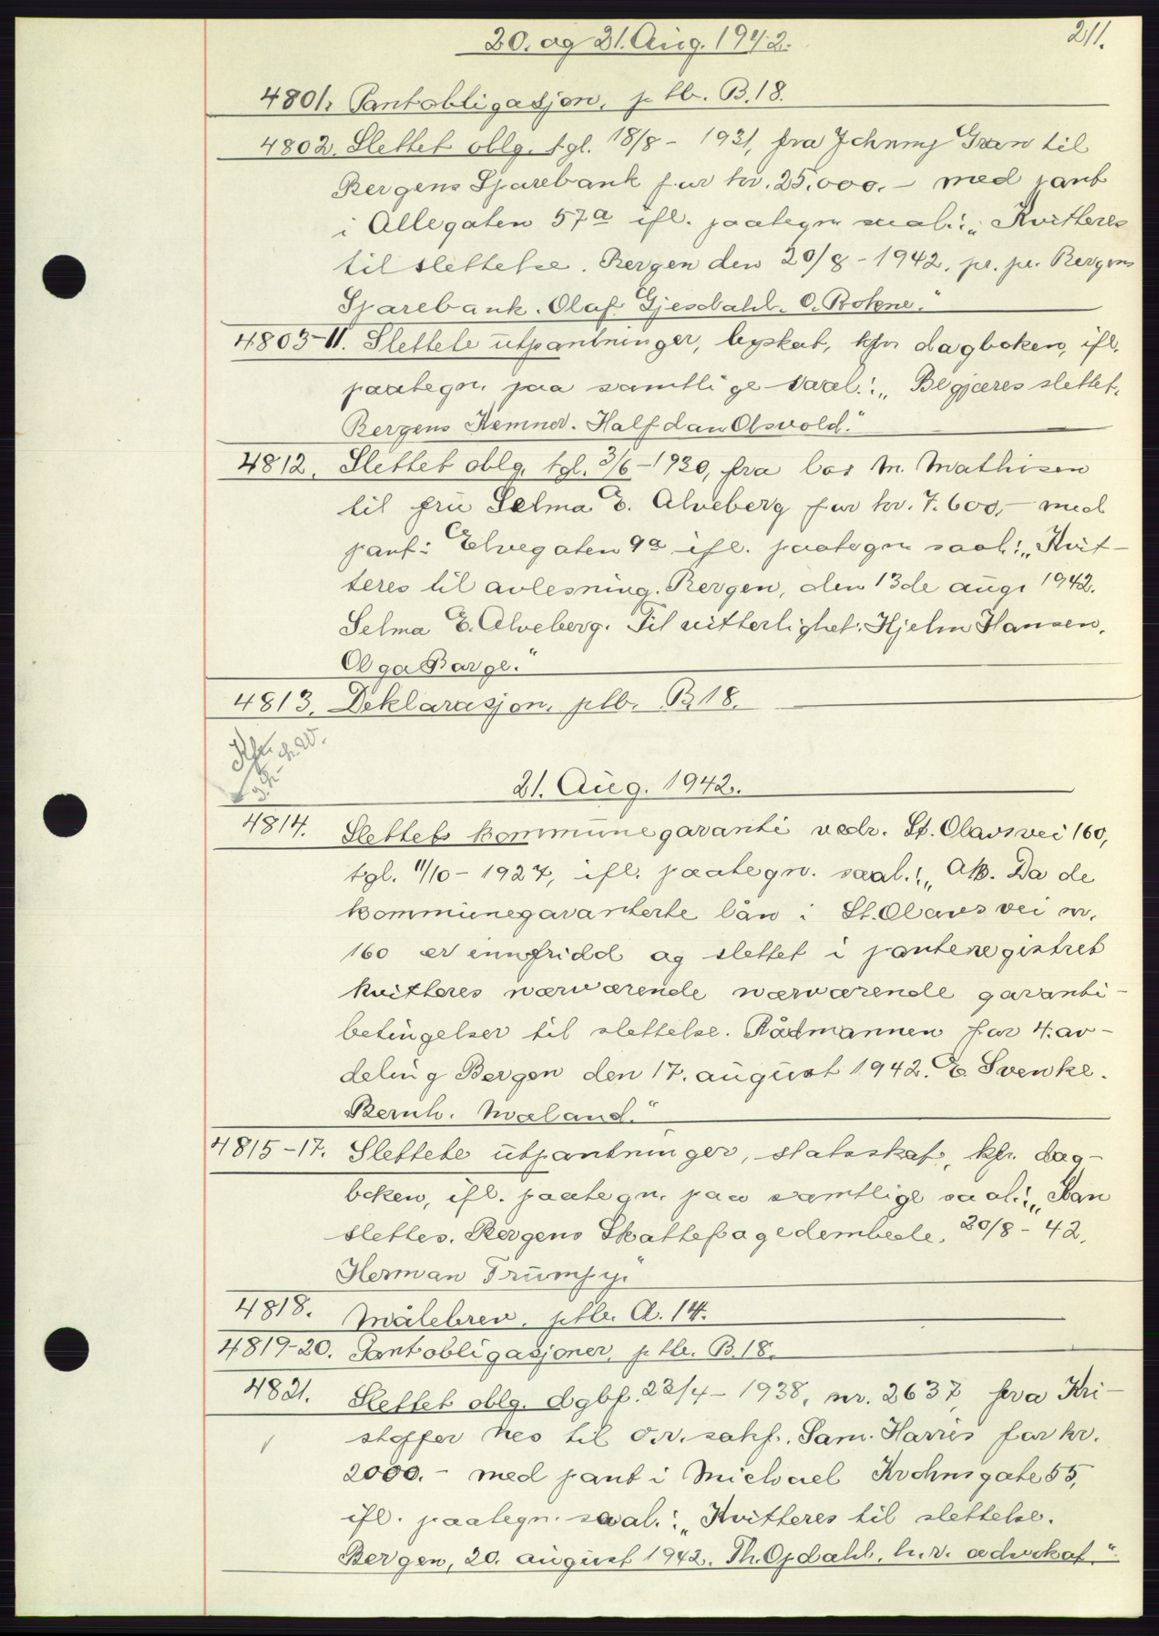 20. og 21. Aug. 1942.
211.
4801. Pantobligasjon, ptb. B.18.
4802. Slettet oblg. tgl. 18/8 - 1931, fra Johnny Gran til
Bergens Sparebank for kr. 25.000.- med pant
i Allegaten 57a ifl. paategn. saal.: „Kvitteres
til slettelse. Bergen den 20/8 - 1942. pr. pr. Bergens
Sparebank. Olaf Gjesdahl. O. Botne."
4803-11. Slettete utpantninger, byskat, kfr. dagboken, ifl.
paategn. paa samtlige saal.: „Begjæres slettet.
Bergens Kemner. Halfdan Olsvold."
4812. Slettet oblg. tgl. 3/6 - 1930, fra los M. Mathisen
til fru Selma E. Alveberg for kr. 7.600,- med
pant i Elvegaten 9a ifl. paategn saal.: „Kvit-
teres til avlesning. Bergen, den 13de aug. 1942.
Selma E. Alveberg. Til vitterlighet: Hjelm Hansen,
Olga Barge."
4813. Deklarasjon, ptb. B.18.
Kfr.
21. Aug. 1942.
4814. Slettet kommunegaranti vedr. St. Olavs vei 160,
tgl. 11/10 - 1927, ifl. paategn. saal.: „AB. Da de
kommunegaranterte lån i St. Olavs vei nr.
160 er innfridd og slettet i panteregistret
kvitteres nærværende nærværende garanti-
betingelser til slettelse. Rådmannen for 4. av-
deling Bergen den 17. august 1942. E. Svenke.
Bernh. Mæland."
4815-17. Slettete utpantninger, statsskat, kfr. dag-
boken, ifl. paategn. paa samtlige saal.: „Kan
slettes. Bergens Skattefogedembede. 20/8 - 42.
Herman Trumpy."
4818. Målebrev, ptb. A. 14.
4819-20. Pantobligasjoner, ptb. B.18.
4821. Slettet oblg. dgbf. 22/4 - 1938, nr. 2637, fra Kri-
stoffer Nes til o.r. sakf. Sam. Harris for kr.
2000.- med pant i Michael Krohnsgate 55,
ifl. paategn. saal.: „Kvitteres til slettelse.
Bergen, 20. august 1942. Th. Opdahl, h.r. advokat."